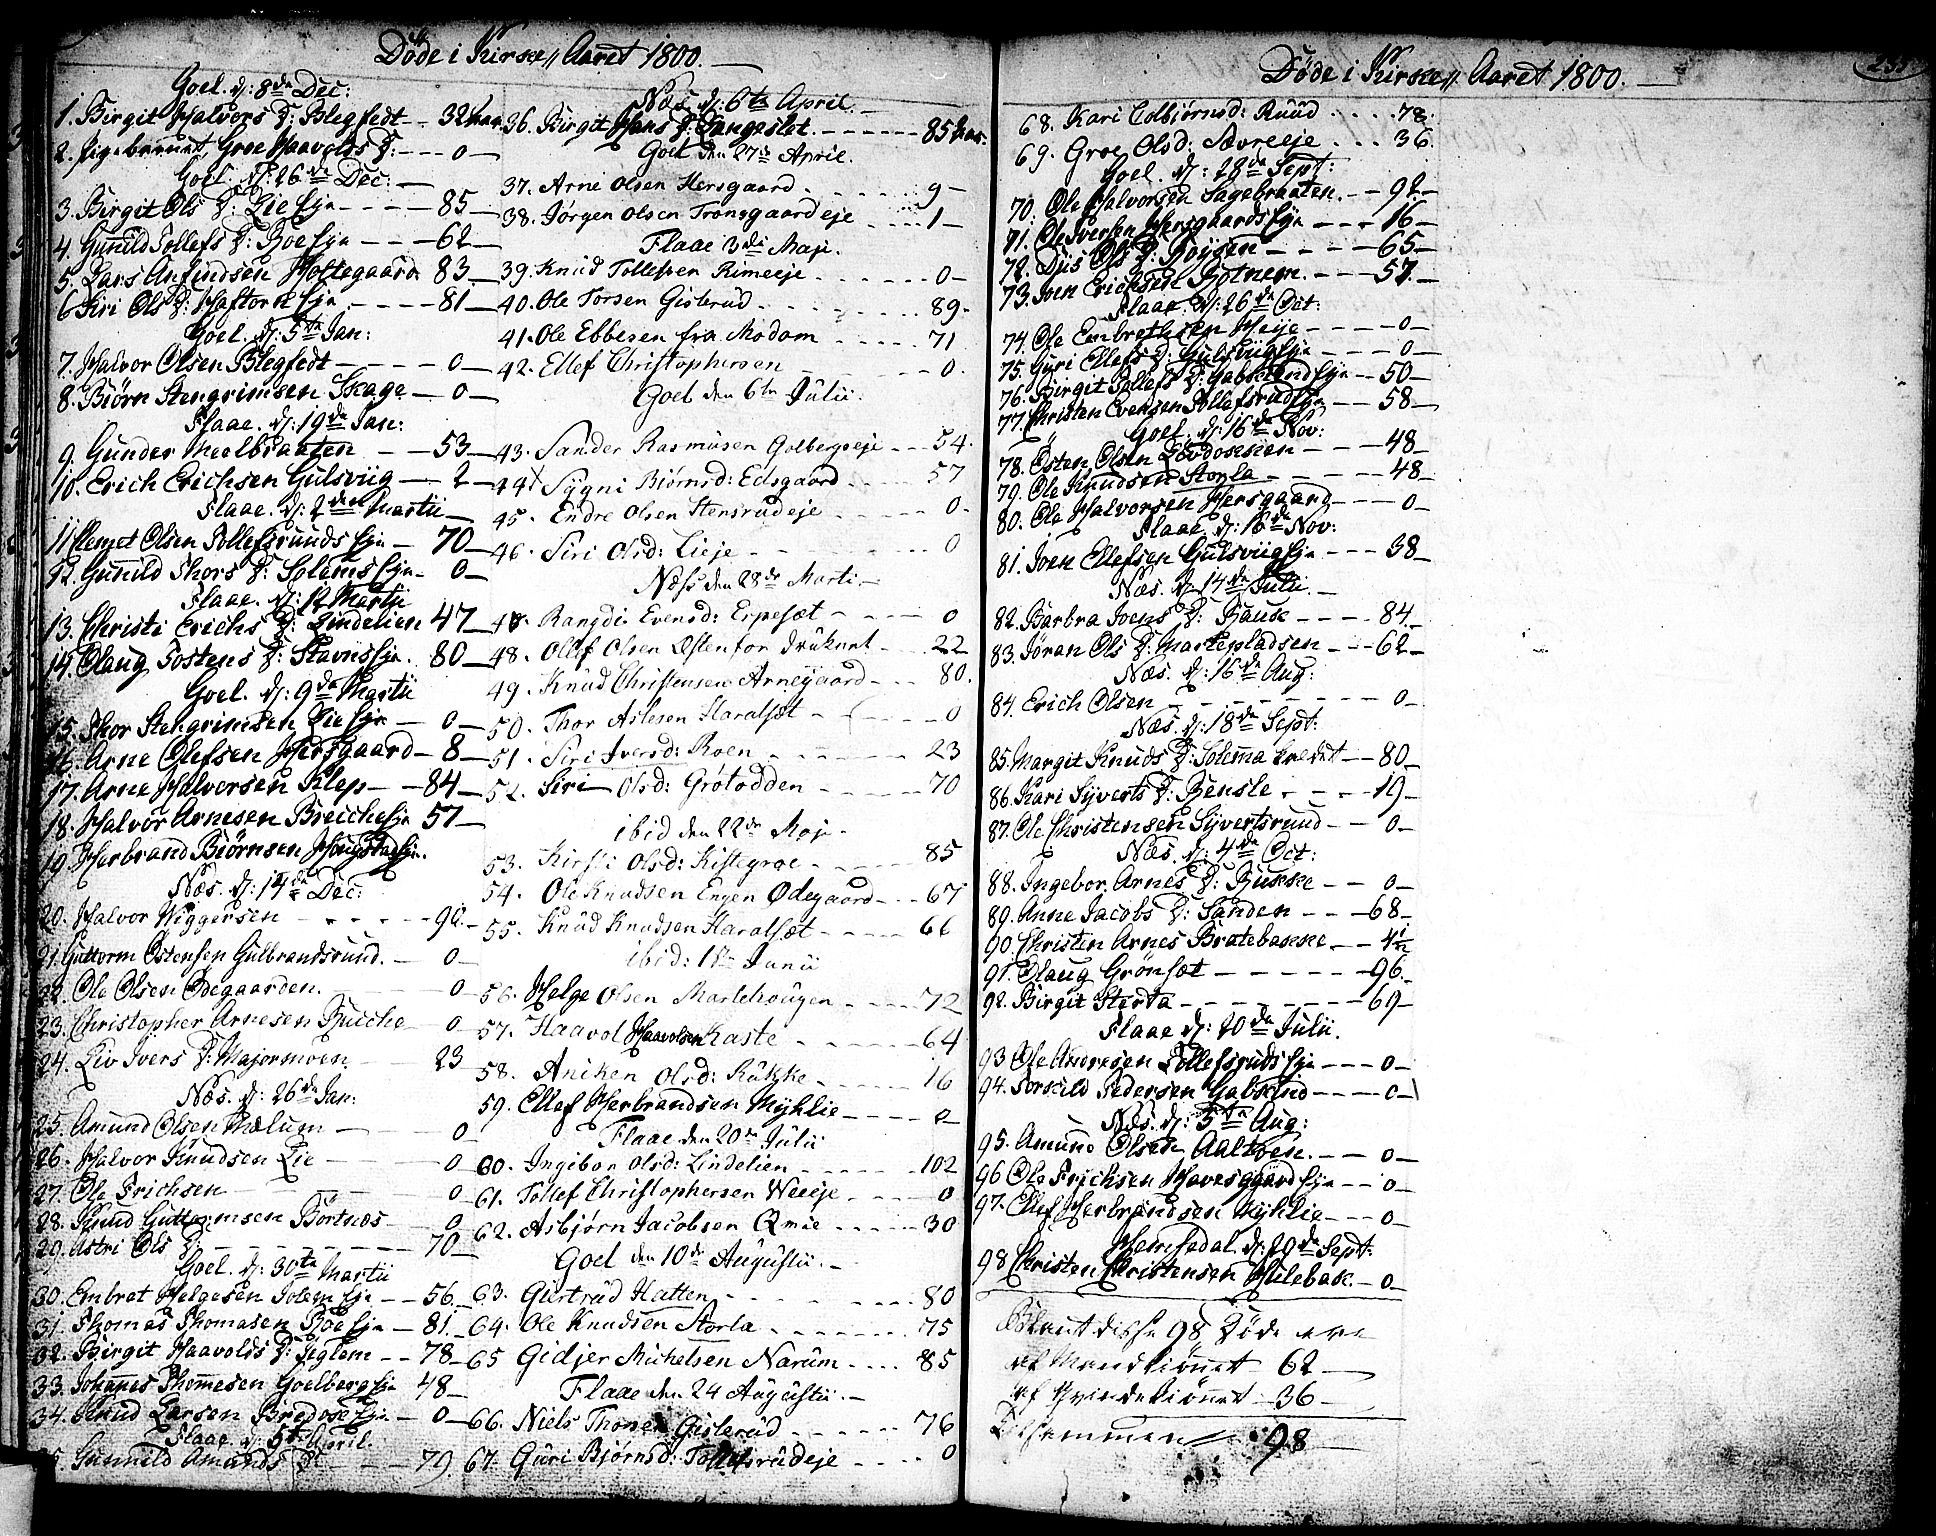 Døde i Kirke // Aaret 1800.
Goel. d: 8de Dec:
1. Birgit Halvors D: Blegfedt — 32 aar
2. Groe Haavolds D: — 0 —
Goel. d: 26de Dec:
3. Birgit Ols D: Lie Eje — 85 —
4. Gunild Tollefs D: Boe Eje — 62 —
5. Lars Anfindsen Holtegaard 83 —
6. Siri Ols D: Haftorn Eje — 81 —
Goel. d: 5te Jan:
7. Halvor Olsen Blegfedt — 0 —
8. Biørn Stengrimsen Skage — 0 —
Flaae. d: 19de Jan:
9. Gunder Meelbraaten — 53 —
10. Erich Erichsen Gulsviig — 2 —
Flaae. d: 2den Martii
11. Olsen Tollefsruuds Eje — 70 —
12. Gunild Thors D: Solems Eje — 0 —
Flaae. d: 12 Martii
13. Christi Erichs D: Lindelien 47 —
14. Olaug Tostens D: Stavns Eje 80 —
Goel. d: 9de Martii
15. Thor Stengrimsen Lie Eje — 0 —
16. Arne Olefsen Hersgaard — 8 —
17. Arne Halvorsen Klep — 84 —
18. Halvor Arnesen Breiche Eje 57 —
19. Herbrand Biørnsen
Næs. d: 14de Dec:
20. Halvor Wiggersen — 90 —
21. Guttorm Østensen Gulbrandsruud. — 0 —
22. Ole Olsen Ødegaarden. — 0 —
23. Christopher Arnesen Bucche 0 —
24. Liv Ivers D: Majormoen. 23
Næs. d: 26de Jan:
25. Amund Olsen Mælum — 0 —
26. Halvor Knudsen Lie — 0
27. Ole Erichsen — 0 —
28. Knud Guttormsen Børtnæs — 0
29. Astri Ols D: — 70 —
Goel. d: 30te Martii
30. Embret Helgesen Solem Eje — 56 —
31. Thomas Thomasen Boe Eje — 81 —
32. Birgit Haavolds D: Jeglem — 78 —
33. Johannes Thomesen Goelberg Eje 48 —
34. Knud Larsen Bredose Eje — 0 —
Flaae. d: 5te April.
35. Gunnild Amunds D: — 79
Næs. d: 6te April
36. Birgit Hans D: Tangeslet. — 85 aar.
Goel den 27de April.
37. Arne Olsen Hersgaard. — 9 —
38. Jørgen Olsen Tronsgaardeje — 1 —
Flaae 3de Maji
39. Knud Tollefsen Rimeeje — 0 —
40. Ole Torsen Gislerud — 89.
41. Ole Ebbesen fra Modom — 71
42. Ellef Christophersen — 0.
Goel den 6te Julii.
43. Sander Rasmusen Golbergseje — 54.
44. Sygni Biørnsd: Edsgaard — 57
45. Endre Olsen Stensrudeje — 0.
46. Siri Olsd: Lieje — 0
Næss den 28de Marti.
47. Rangdi Evensd: Erpesæt — 0
48. Ollef Olsen Østenfor druknet — 22
49. Knud Christensen Arnegaard — 80.
50. Thor Aslesen Haralsæt — 0
51. Siri Iversd: Roen — 23
52. Siri Olsd: Grøtodden — 70
ibid den 22de Maji.
53. Kirsti Olsd: Kistegroe — 85
54. Ole Knudsen Engen Ødegaard — 67
55. Knud Knudsen Haralsæt — 66
ibid: 1te Junii
56. Helge Olsen Martehougen — 72
57. Haavol Haavolsen Kaste — 64
58. Aniken Olsd: Rukke — 16
59. Ellef Herbrandsen Myhlie — 0
Flaae den 20de Julii
60. Ingibor Olsd: Lindelien — 102
61. Tollef Christophersen Weeeje — 0
62. Asbjørn Jacobsen — 30
Goel den 10de Augustii.
63. Gurtrud Hatten — 80
64. Ole Knudsen Storla — 75
65 Gidjer Michelsen Narum — 85
Flaae den 24 Augustii.
66. Niels Gislerud — 76
67. Guri Bjørnsd: Tollefsrudeje — 0
Døde i Kirke // Aaret 1800.
68. Kari Colbjørnsd: Ruud — 78.
69. Groe Olsd: Sævreeje — 36.
Goel. d: 28de Sept:
70. Ole Halvorsen Sagebraaten. — 92 —
71. Ole Iversen Hersgaards Eje — 16 —
72. Ols D: Nøysen — 65 —
73. Joen Erichsen Botnem. — 57. —
Flaae. d: 26de Oct:
74. Ole Embrethsen Heije — 0 —
75. Guri Ellefs D: Gulsviig Eje — 0 —
76. Birgit Tollefs D: Gabsund Eje — 50 —
77. Christen Evensen Tollefsrud Eje — 58 —
Goel. d: 16de Nov:
78. Østen Olsen Løvdoseeien — 48 —
79. Ole Knudsen Storla — 48
80. Ole Halvorsen Hersgaard — 0 —
Flaae. d: 16de Nov:
81. Joen Ellefsen Gulsviig Eje — 38 —
Næs. d: 14de Julii.
82. Barbra Joens D: Bause — 84 —
83. Jøran Ols D: Markepladsen — 62 —
Næs. d: 16de Aug:
84. Erich Olsen — 0 —
Næs. d: 18de Sept:
85. Margit Knuds D: Solema — 80 —
86. Kari Sjverts D: Bensle — 19 —
87. Ole Christensen Sjvertsruud — 0 —
Næs. d: 4de Oct:
88. Ingebor Arnes D: Bukke — 0 —
89. Anne Jacobs D: Sanden — 68 —
90. Christen Arnes Bratebakke — 4
91. Olaug Grønsæt — 96.
92. Birgit Sterta — 69 —
Flaae d: 20de Julii.
93 Ole Andresen Tollefsruds Eje — 0 —
94. Torkild Pedersen Gabsund — 0 —
Næs. d: 3die Aug:
95. Amund Olsen Aaltvén. — 0 —
96 Ole Erichsen Havesgaard Eje — 0 —
97. Ellef Herbrandsen Myhlie — 0 —
Hemsedal d: 29de Sept:
98 Christen Christensen Hulebak — 0 —
Iblant disse 98 Døde ere
af Mandkiønnet 62 —
af Qvindekiønnet 36 —
Tilsammen 98